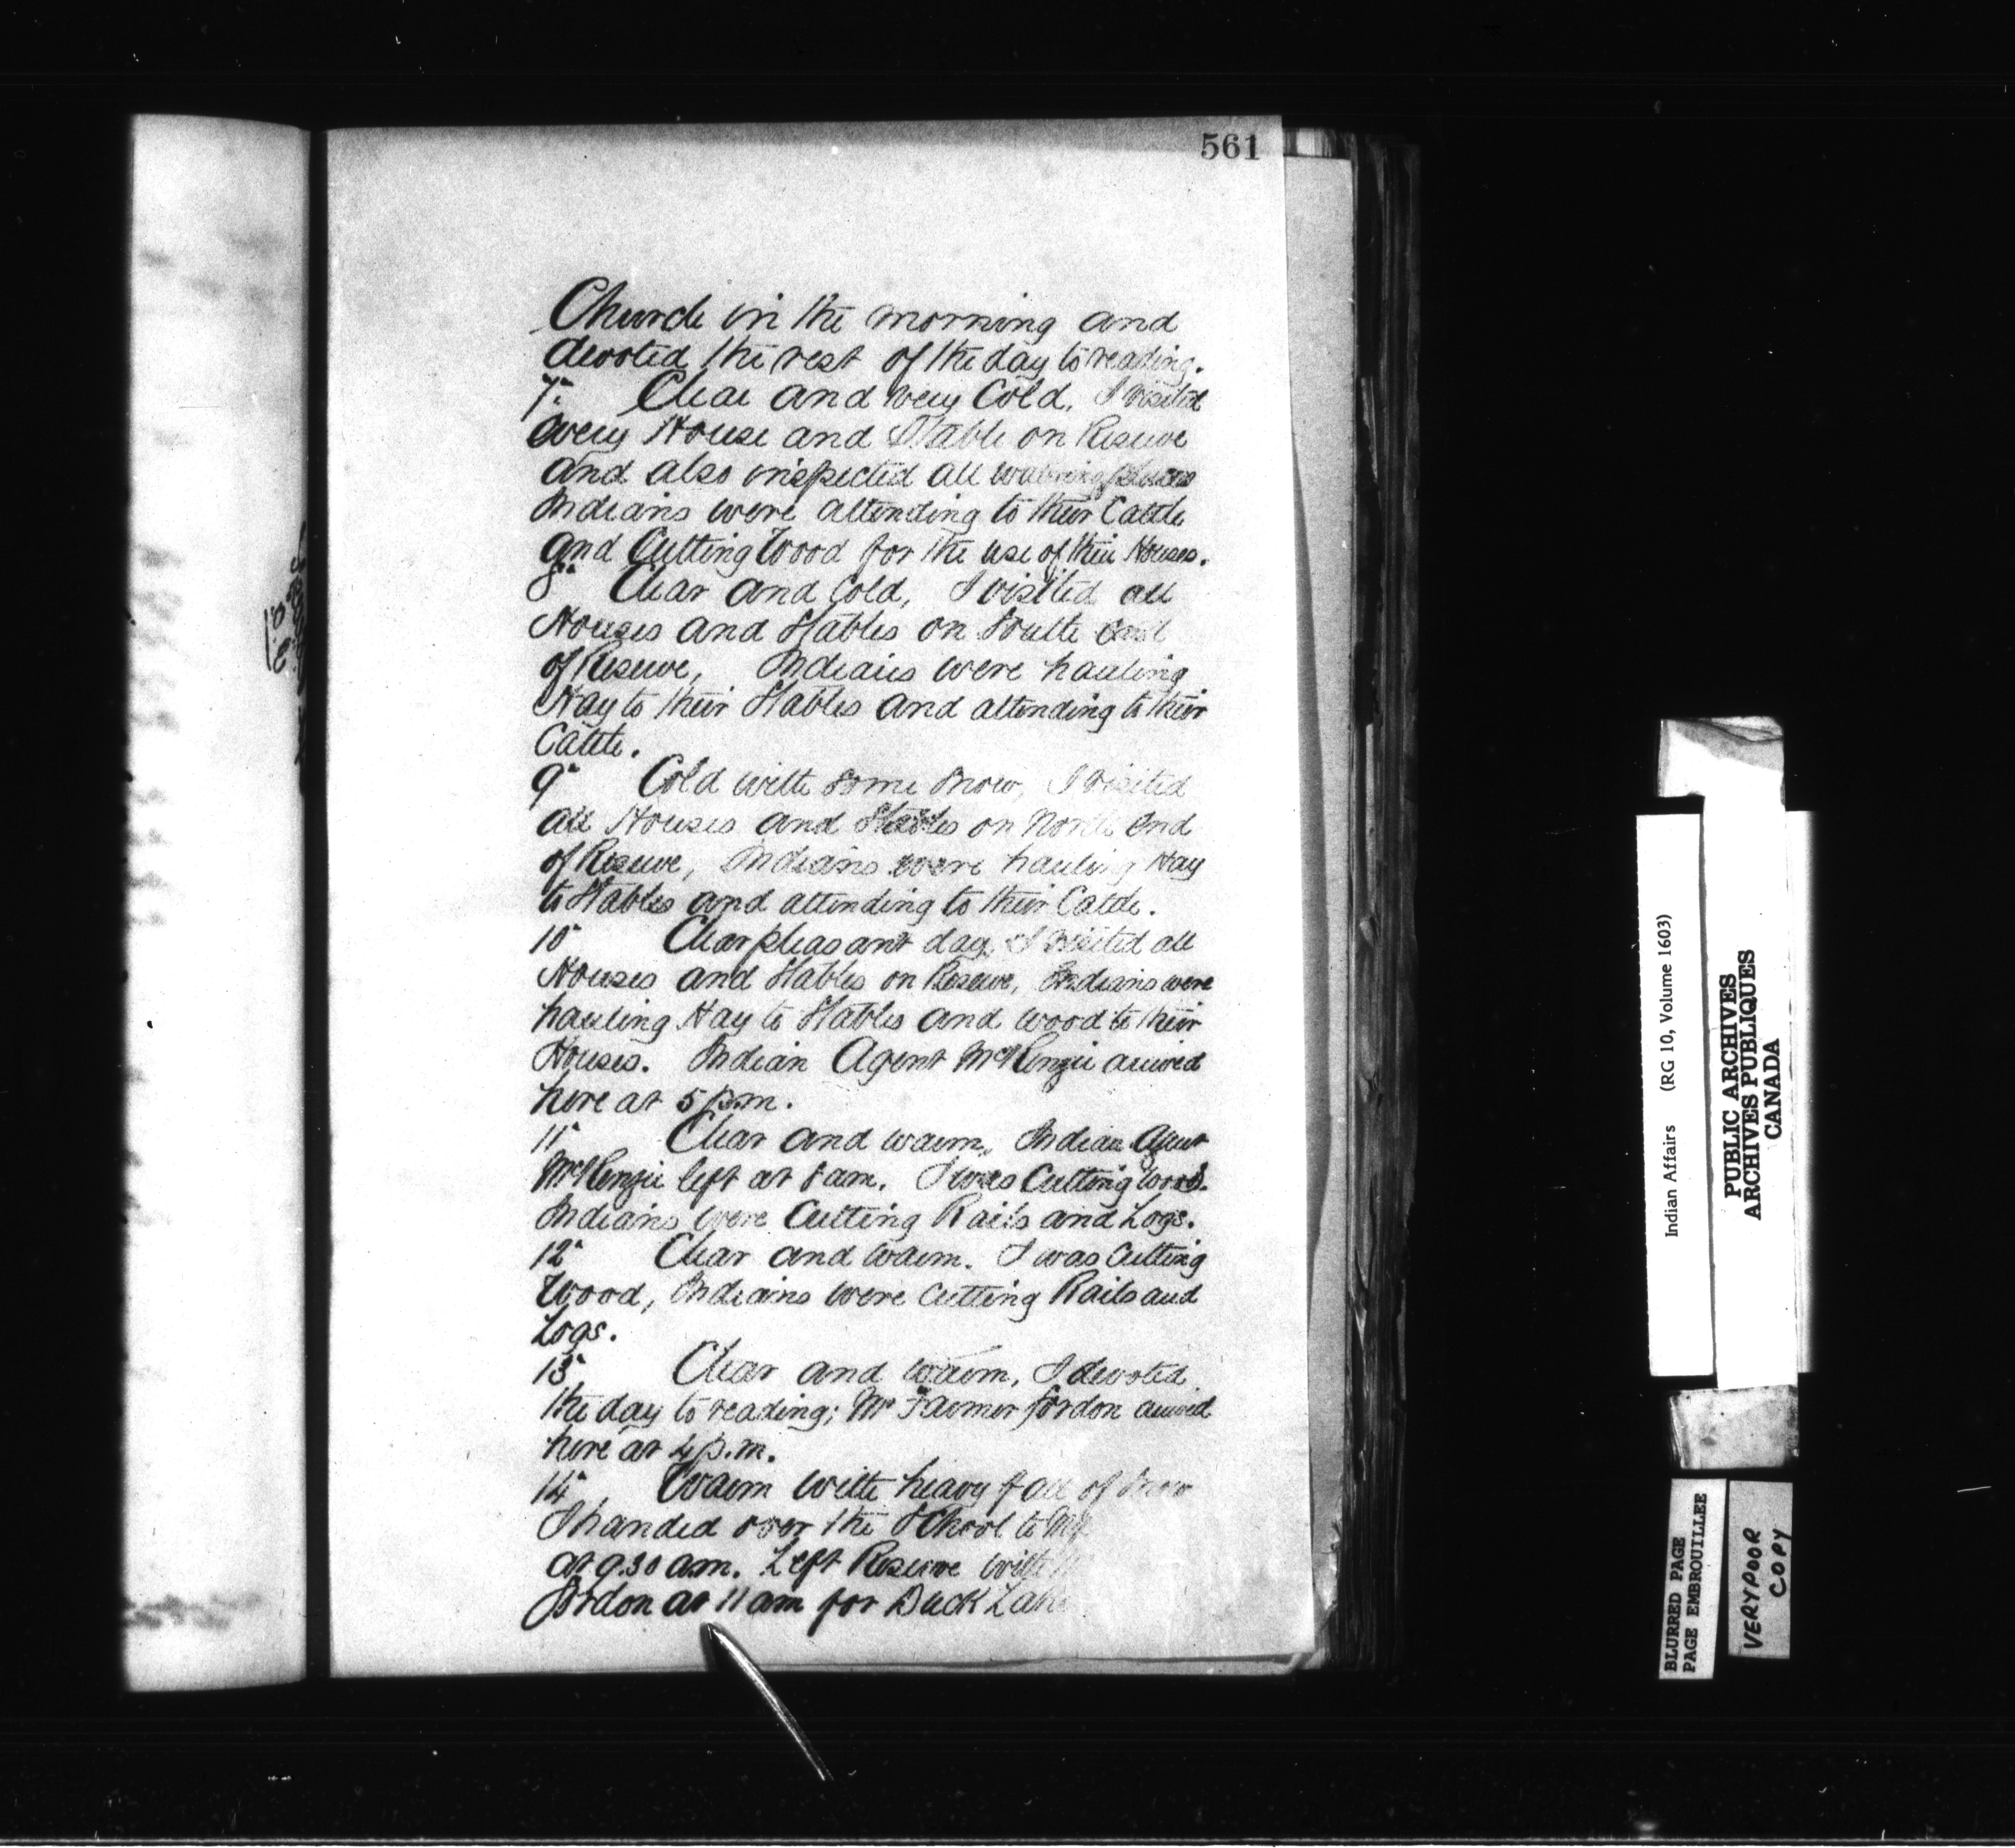 561
Church in the morning and
devoted the rest of the day to reading.
7th Clear and very Cold. I visited
every House and Stable on Reserve
and also inspected all watering places
Indians were attending to their Cattle
and Cutting Wood for the use of their Houses.
8th Clear and Cold, I visited all
Houses and Stables on South end
of Reserve, Indians were hauling
Hay to their Stables and attending to their
Cattle.
9th Cold with some snow, I visited
all Houses and Stables on North end
of Reserve, Indians were hauling Hay
to Stables and attending to their Cattle.
10th Clear pleasant day, I visited all
Houses and Stables on Reserve, Indians were
hauling Hay to Stables and wood to their
Houses. Indian Agent McKenzie arrived
here at 5 p.m.
11th Clear and warm, Indian Agent
McKenzie left at 8 am. I was Cutting wood.
Indians were Cutting Rails and Logs.
12th Clear and warm. I was Cutting
Wood, Indians were cutting Rails and
Logs.
13th Clear and warm, I devoted
the day to reading; Mr Farmer Gordon arrived
here at 4 p.m.
14th Warm with heavy fall of Snow
I handed over the School to
at 9.30 am. Left Reserve with
Gordon at 11 am for Duck Lake
Indian Affairs (RG 10, Volume 1603)
PUBLIC ARCHIVES
ARCHIVES PUBLIQUES
CANADA
BLURRED PAGE
PAGE EMBROUILLEE
VERY POOR
COPY